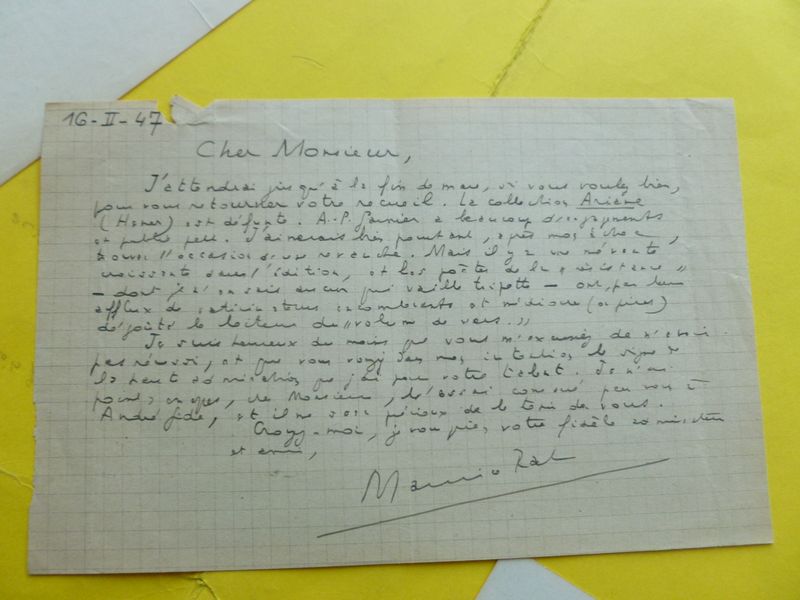 16-II-47
Cher Monsieur,
J'attendrai jusqu'à la fin de mars, si vous voulez bien,
pour vous retourner votre recueil. La collection Ariane
est défunte. A.-P. Garnier a beaucoup d'engagements
et publie peu. J'aimerais bien pourtant, après mon échec,
trouver l'occasion d'une revanche. Mais il y a une mévente
croissante dans l'édition, et les poètes de la "résistance"
- dont je n'en sais aucun qui vaille tripette - ont, par leur
afflux de encombrants et médiocres (ou pires)
dégoûté le lecteur du "volume de vers."
Je suis heureux du moins que vous m'excusiez de n'avoir
pas réussi, et que vous voyez dans mes intentions le signe de
la haute admiration que j'ai pour votre talent. Je n'ai
point cher Monsieur, l'essai consacré par vous à
André Gide, et il me sera précieux de le tenir de vous.
Croyez-moi, je vous prie, votre fidèle admirateur
et ami,
Maurice Rat